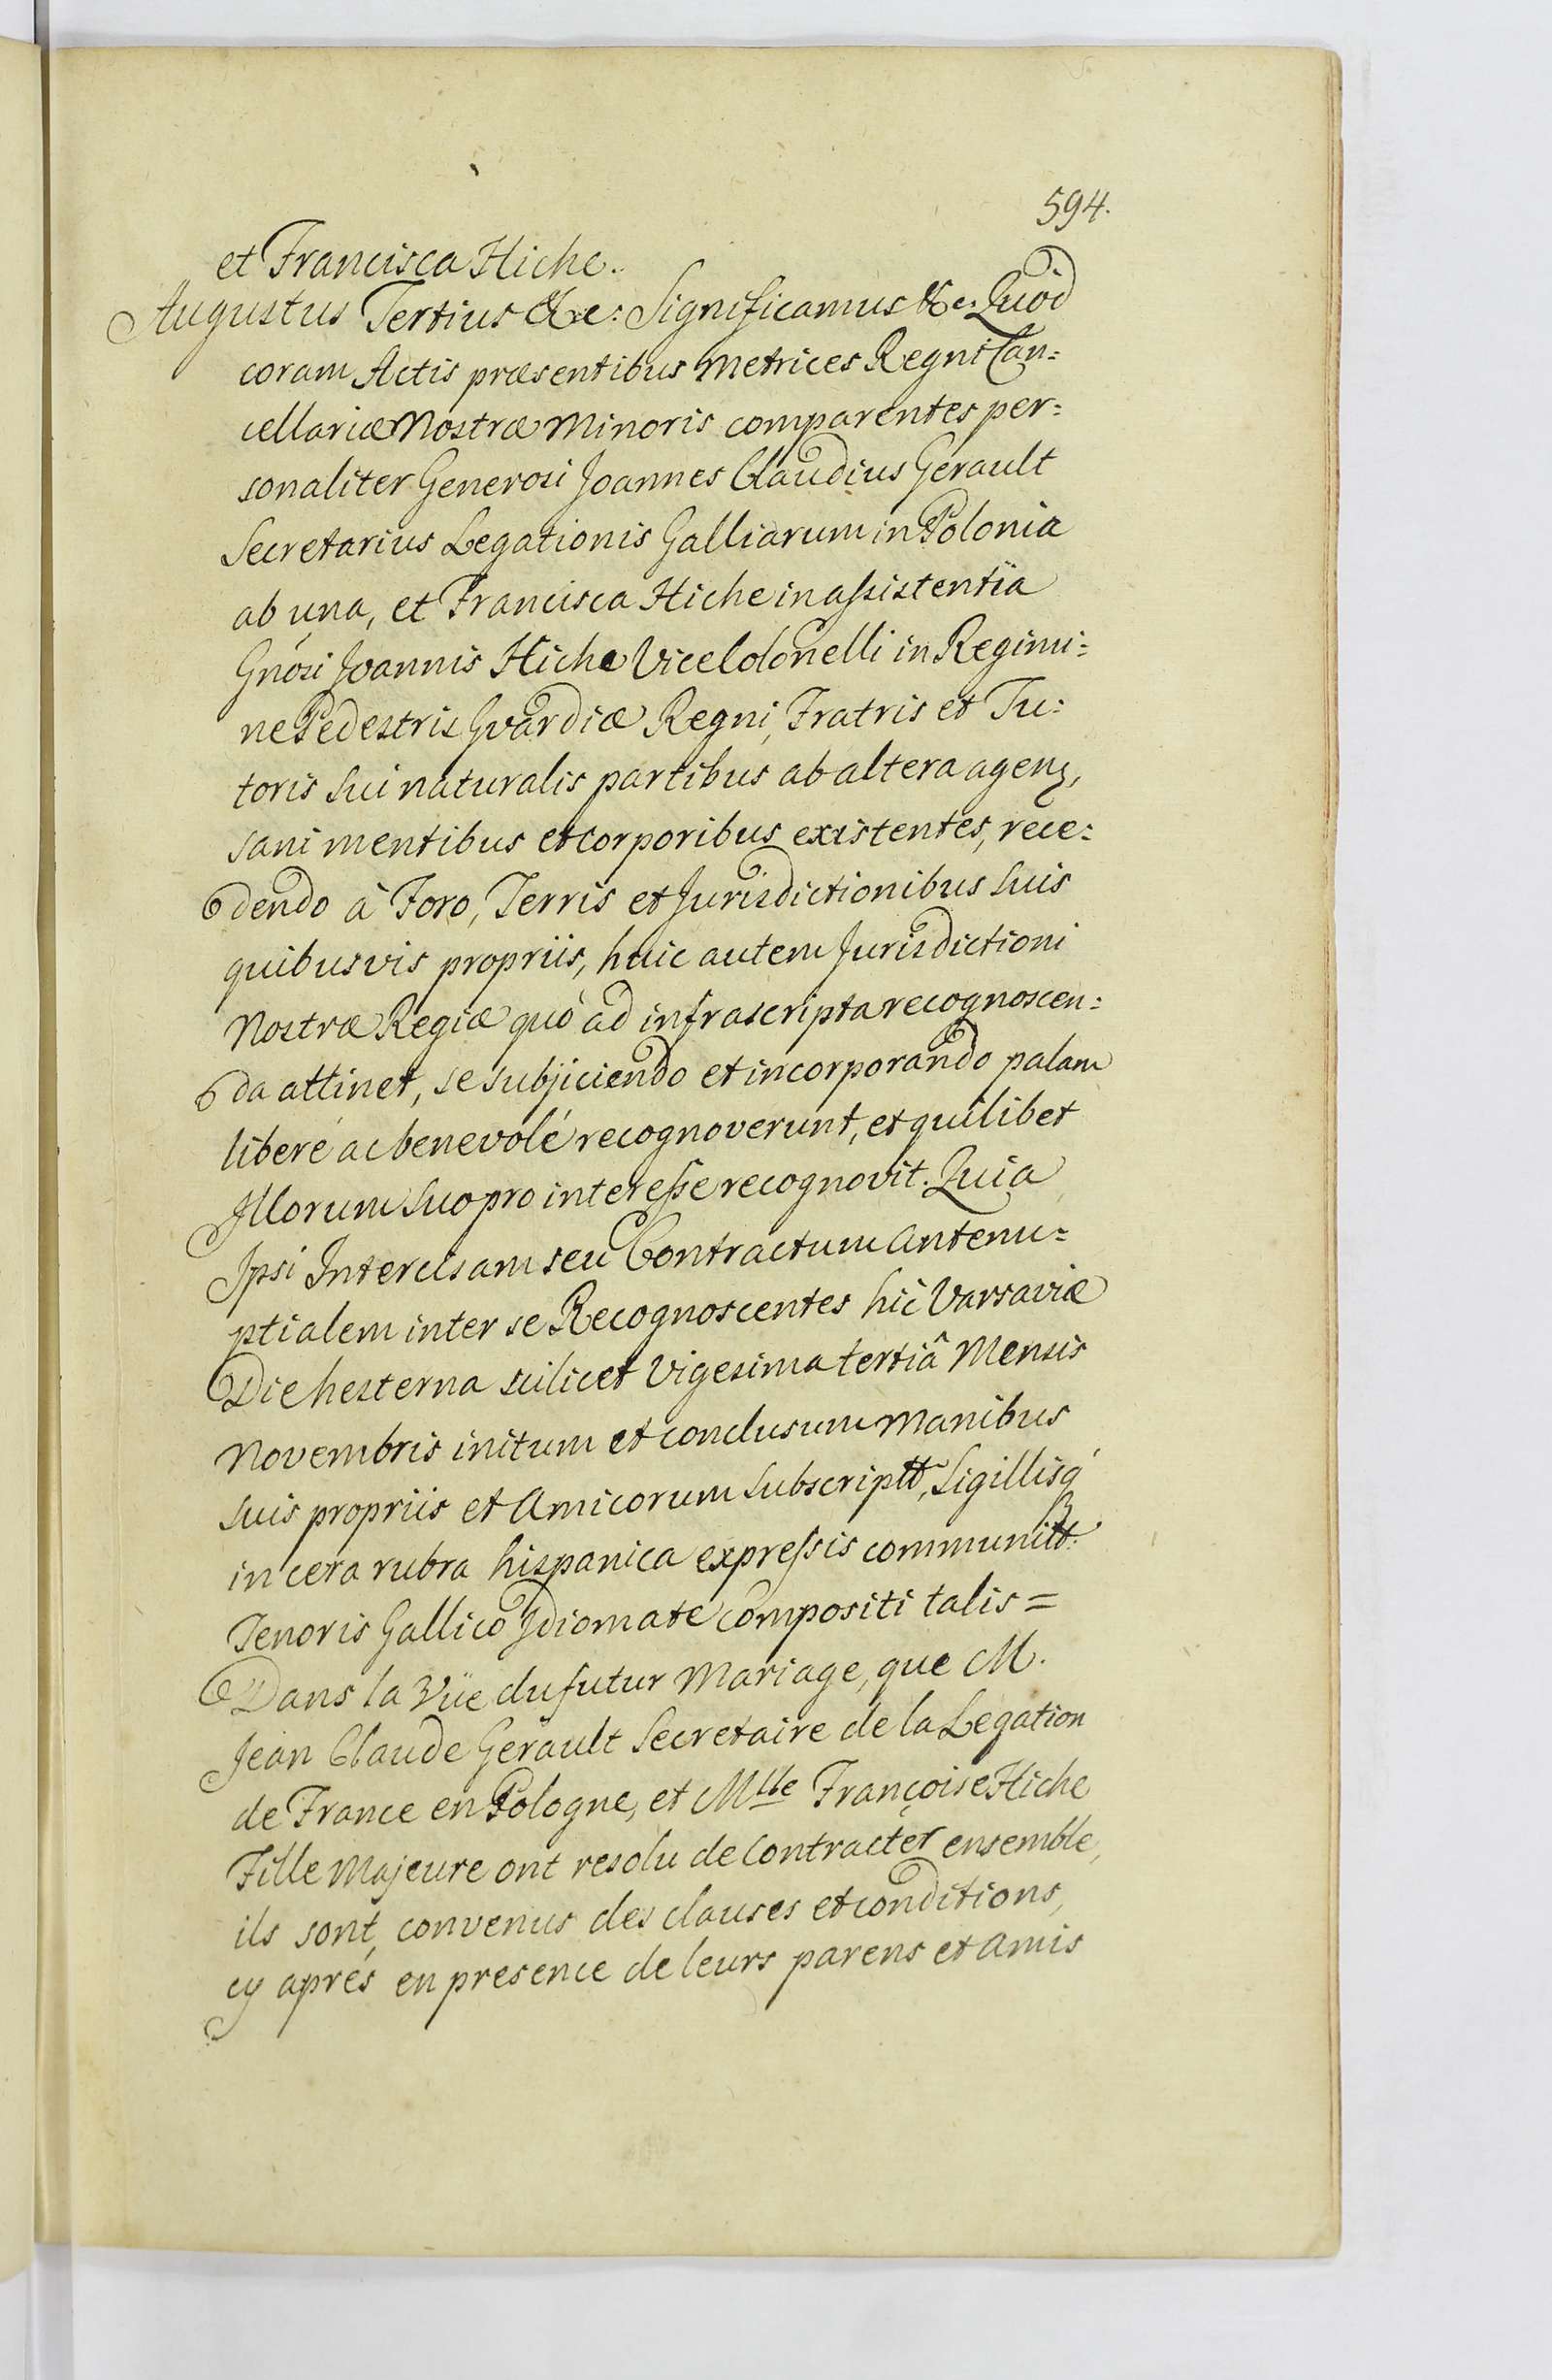 594.
et Francisca Hiche.
Augustus Tertius &c: Significamus &c: Quod
coram Actis præsentibus Metrices Regni Can:
cellariæ Nostræ Minoris comparentes per:
sonaliter Generosi Joannes Claudius Gerault
Secretarius Legationis Galliarum in Polonia
ab una, et Francisca Hiche in assistentia
Gnosi Joannis Hiche ViceColonelli in Regimi:
ne Pedestris Gvardiæ Regni, Fratris et Tu:
toris Sui naturalis partibus ab altera agen,
sani mentibus et Corporibus existentes, rece:
dendo à Foro, Terris et Jurisdictionibus Suis
quibusvis propriis, huic autem Jurisdictioni
Nostræ Regiæ quò ad infrascripta recognoscen:
da attinet, se subjiciendo et incorporando palam
liberé ac benevolé recognoverunt, et quilibet
Illorum Suo pro interesse recognovit. Quia
Ipsi Intercisam seu Contractum Antenu=
ptialem inter se Recognoscentes hic Varsaviæ
Die hesterna scilicet Vigesima tertiâ Mensis
Novembris initum et conclusum Manibus
Suis propriis et Amicorum Subscriptt, Sigillisq́
in cera rubra hispanica expressis communitt.
Tenoris Gallico Idiomate Compositi talis =
Dans la Vüe du futur Mariage, que M.
Jean Claude Gerault Secretaire de la Legation
de France en Pologne, et Mlle Françoise Hiche
Fille Majeure ont resolu de Contracter ensemble,
ils sont convenus des clauses et conditions,
cy aprés en presence de leurs parens et Amis